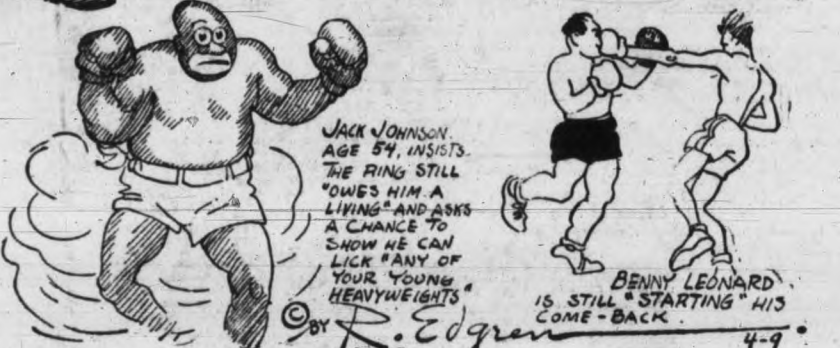 JACK JOHNSON.
AGE 54, INSISTS
THE RING STILL
"OWES HIM A
LIVING" AND ASKS
A CHANCE TO
SHOW HE CAN
LICK "ANY OF
YOUR YOUNG
HEAVYWEIGHTS"
© BY R. Edgren
BENNY LEONARD
IS STILL "STARTING" HIS
COME-BACK.
4-9